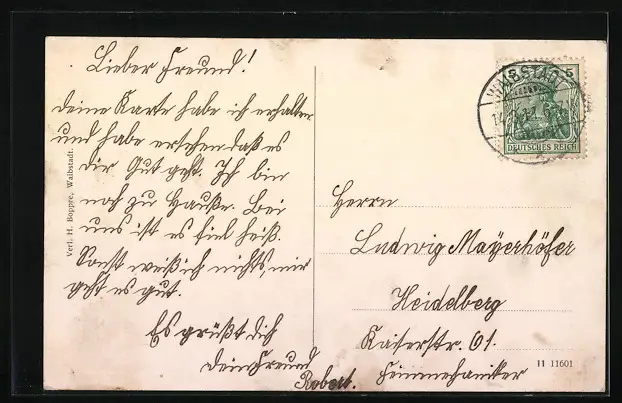 Lieber Freund!
deine Karte habe ich erhalten
und habe ersehen daß es
dir Gut geht. Ich bin
noch zu Hauße. Bei
uns ist es fiel heiß.
Sonst weiß ich nichts, mir
geht es gut.
Es grüßt dich
dein Freund
Robert.
Verl. H. Boppre, Waibstadt.
WAIBSTADT
5
DEUTSCHES REICH
Herrn
Ludwig Mayerhöfer
Heidelberg
Kaiserstr. 61.
Feinmechaniker
11 11601